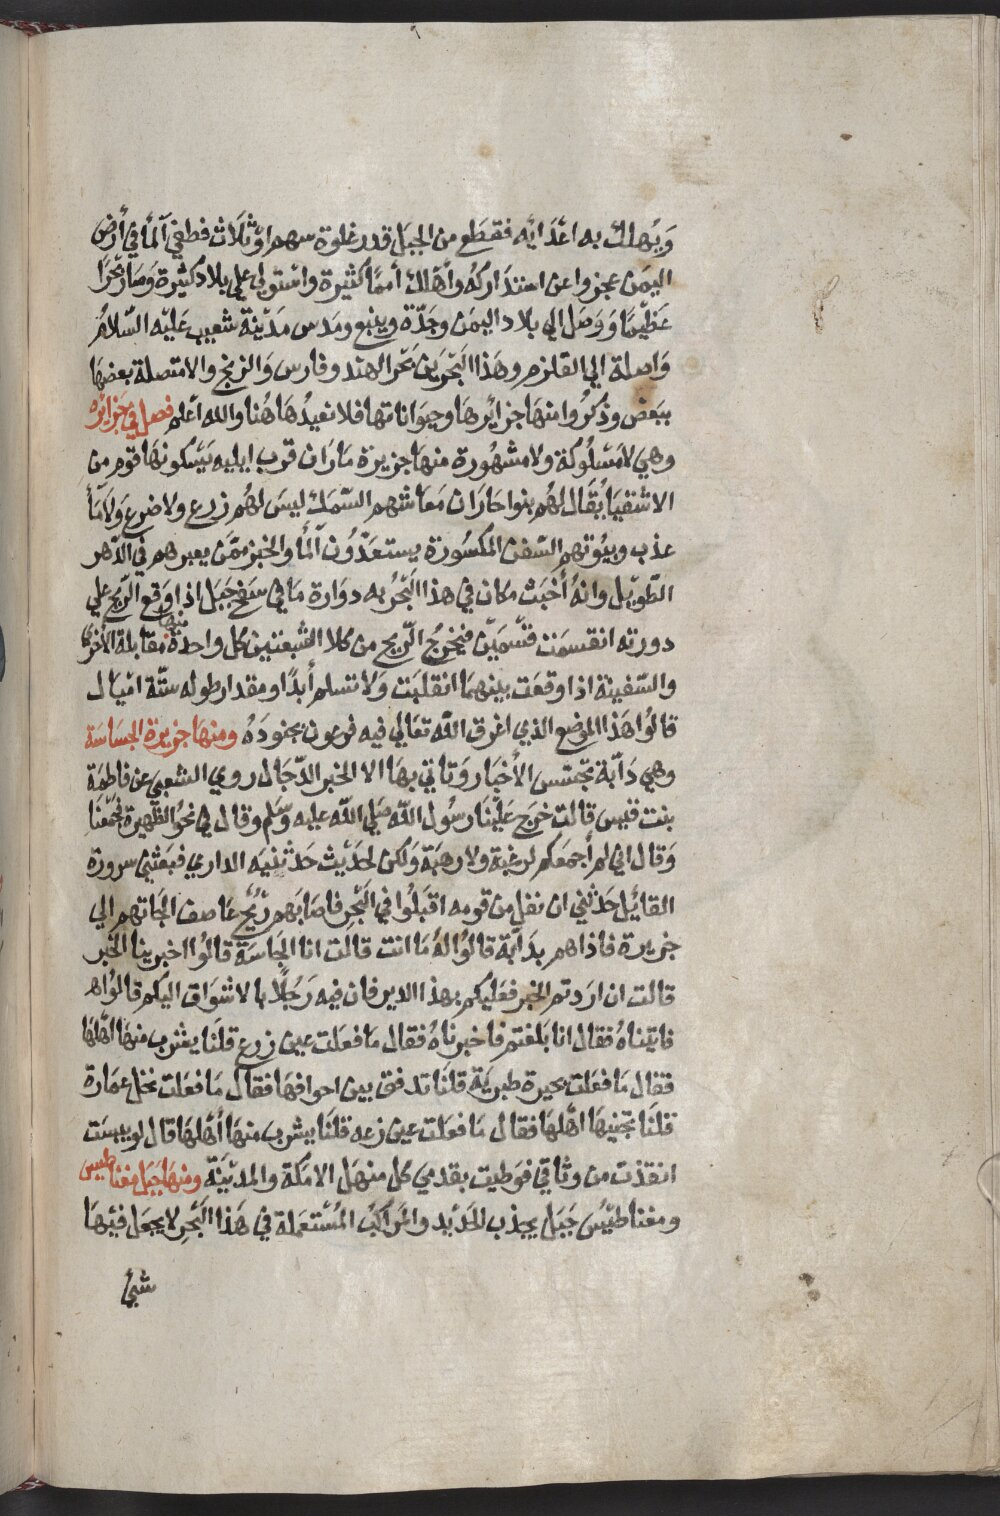 وَيُهلك به اعْدَايَه فقطَع من الجبَل قدر غلوة سهم اوْ ثلَاث فطغي آلمأ في أرض
اليمَن عجزوا عن استذاركهُ وأهَلك أممًا كثيرة واسْتولي علي بلادكثيرة وَصَار بحْرًا
عَظيْمًا وَوَصَل الي بلاد اليمَن وجَدّة وينبع ومَدىں مَدْينَة شعيب عَليْه السّلامُ
وَاصلة الي القلزم وهَذا البَحْر بَين بحْر الهند وفارس وَالزنج والامتصلة بعضهَا
ببَعض وذكرُوا منهَا جزائرهَا وحيوَاناتها فلانعيدُهَا هُنا والله اعلم فصل في جَزائره
وهي لامَسْلُوكة ولا مشهُورة منهَا جزيرة مَارَان قرب ايليه يَسْكونهَا قوم من
الاشْقيَا يُقَال لهُم بنوا حارَان مَعَاشهم السّمَك ليسَ لهُم زرع ولاضرع وَلَا مَأ
عذب وبيُوتهم السّفن المكسُورة يستعَذْوُن آلْمأ والخبز ممّن يعبرهم في الدّهر
الطّويْل وانهُ أخبَث مكان في هذا البَحْر به دوَارة مَا في سَفح جَبَل اذا وَقع الرّيح علي
دورته انقسمَت قسْميْن فيخرجُ الرّيح من كلا الشعبتين كل واحدة منهَا مقابلة الأخري
والسّفينة اذا وقعَت بينهمَا انقلبَت وَلاتسلم أبدًا ومقدار طوله ستّة اميَال
قالوُا هَذا الموْضع الذي اغرق اللّٰه تعَالي فيه فرعون بجنودَهُ ومنهَا جزيرة الجسَاسَة
وهي دَآبّة تجتسّس الأخبَار وَتاتي بهَا الا الخبر الدّجَال روي الشعبي عن فاطمَة
بنت قيسَ قالت خرَج عَليْنَا رسُول اللّه صَلي اللّه عليه وسَلم وقال في نحوُ الظهيرة فجمْعنَا
وَقال اني لم أجمعَكم لرغبة ولا رهبَة وَلكن لحَديْث حَدثنيْه الداري فبعَثني سرورة
القائيل حَدثني ان نفل من قومه اقبَلوُا في البَحْر فاصَابَهم ريْح عَاصف الجَاتهم الي
جزيرة فاذاهم بدَابّة قالوُا لهُ مَا انت قالت انا الجَاسَة قالوُا اخبرينا الخبر
قالت ان ارَدتم الخبر فعَليكم بهذا الدير فان فيه رَجُلًا بالاشوَاق اليْكم قالوُاه
فاتيْناهُ فقال انا بَلغتم فاخبرناهُ فقال مَا فعَلت عين زرع قلنَا يشرب منهَا اهْلهَا
فقال مَا فعَلت بحيرة طبريَة قلنَا تدفق بين احوافهَا فقال مَا فعَلت نخل عمَارة
قلنَا يجَنيهَا اهْلهَا فقال مَا فعَلت عين زعه قلنَا يشرب منهَا أهْلهَا قال لو يبسَت
انقذت من وثاقي فوَطيت بقدمي كل منهَل الامَكة والمديْنة ومنهَا جبَل مغناطيس
ومغناطيْس جَبَل يجذب الحَديْد والمَراكبُ المُسْتعملة في هَذا البَحْر لا يجعَل فيْهَا
شيئ